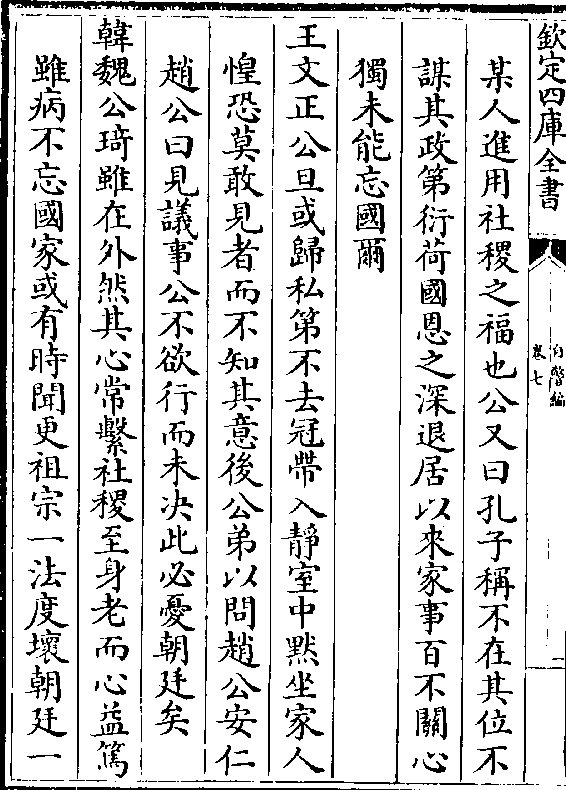 欽定四庫全書
自警編
卷七
二
某人進用社稷之福也公又曰孔子稱不在其位不
謀其政第衍荷國恩之深退居以來家事百不關心
獨未能忘國爾
王文正公旦或歸私第不去冠帶入靜室中黙坐家人
惶恐莫敢見者而不知其意後公弟以問趙公安仁
趙公曰見議事公不欲行而未决此必憂朝廷矣
韓魏公琦雖在外然其心常繫社稷至身老而心益篤
雖病不忘國家或有時聞更祖宗一法度壞朝廷一